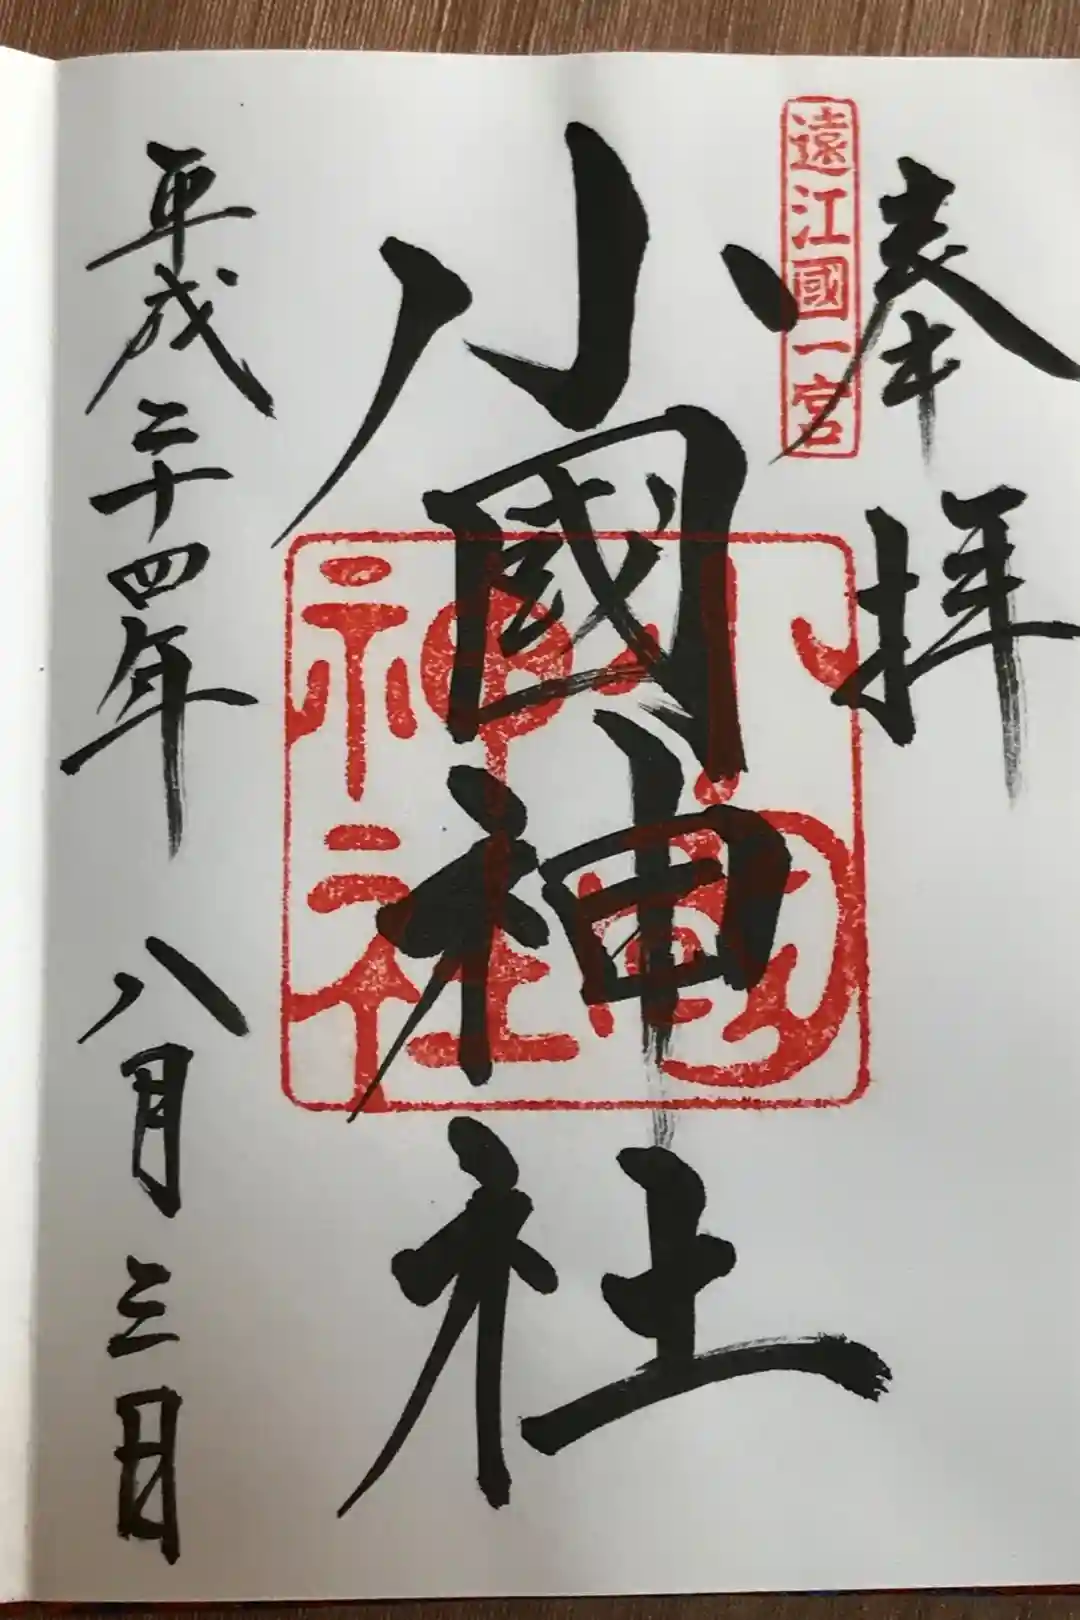 奉拝
遠江國一宮
小國神社
小國
神社
平成二十四年 八月三日